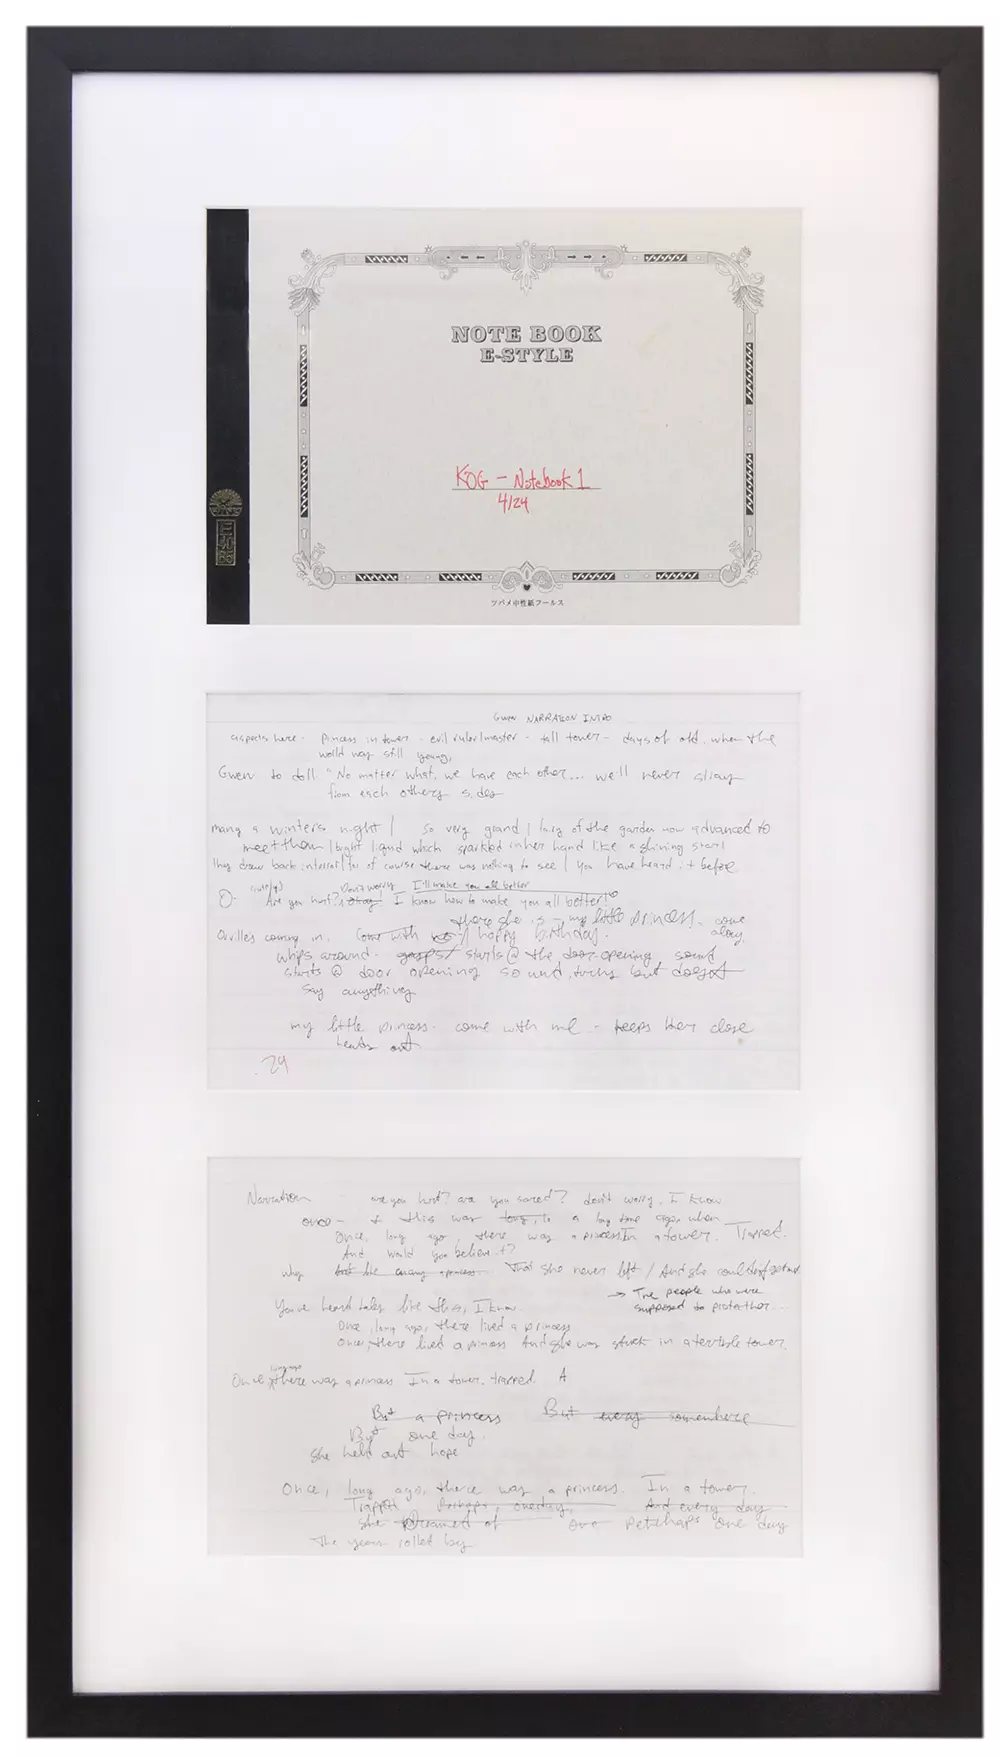 NOTE BOOK
E-STYLE
KOG - Notebook 1
4/24
ツバメ中性紙フールス
Gwen NARRATION INTRO
aspects here - princess in tower - evil ruler/master - tall tower - days of old, when the
world was still young,
Gwen to doll. "No matter what, we have each other... we'll never stray
from each others sides
many a winters night / So very grand / of the garden now advanced to
meet them / bright liquid which sparkled in her hand like a shining star /
they draw back / of course there was nothing to see / you have heard it before
O- Are you hurt? Don't worry I'll make you all better
okay. I know how to make you all better!"
there she is - my little princess. come
along.
Orville's coming in. Come with me / happy birthday.
whips around - gasps / starts @ the door opening sound
starts @ door opening sound, but doesn't
say anything
my little princess. come with me - keeps her close
heads out
.24
Narration are you hurt? are you scared? don't worry. I know
once - this was long, a long time ago, when
Once, long ago, there was a princess In a tower. Trapped.
And would you believe it?
why That she never left / And she could not
→ The people who were
supposed to protect her...
You've heard tales like this, I know.
Once, long ago, there lived a princess
Once, there lived a princess And she was stuck in a terrible tower.
Once long ago there was a princess In a tower. trapped. A
But a princess But every somewhere
But one day.
She held out hope
Once, long ago, there was a princess. In a tower.
Trapped. Perhaps, one day, And every day
She dreamed of perhaps one day
The years rolled by